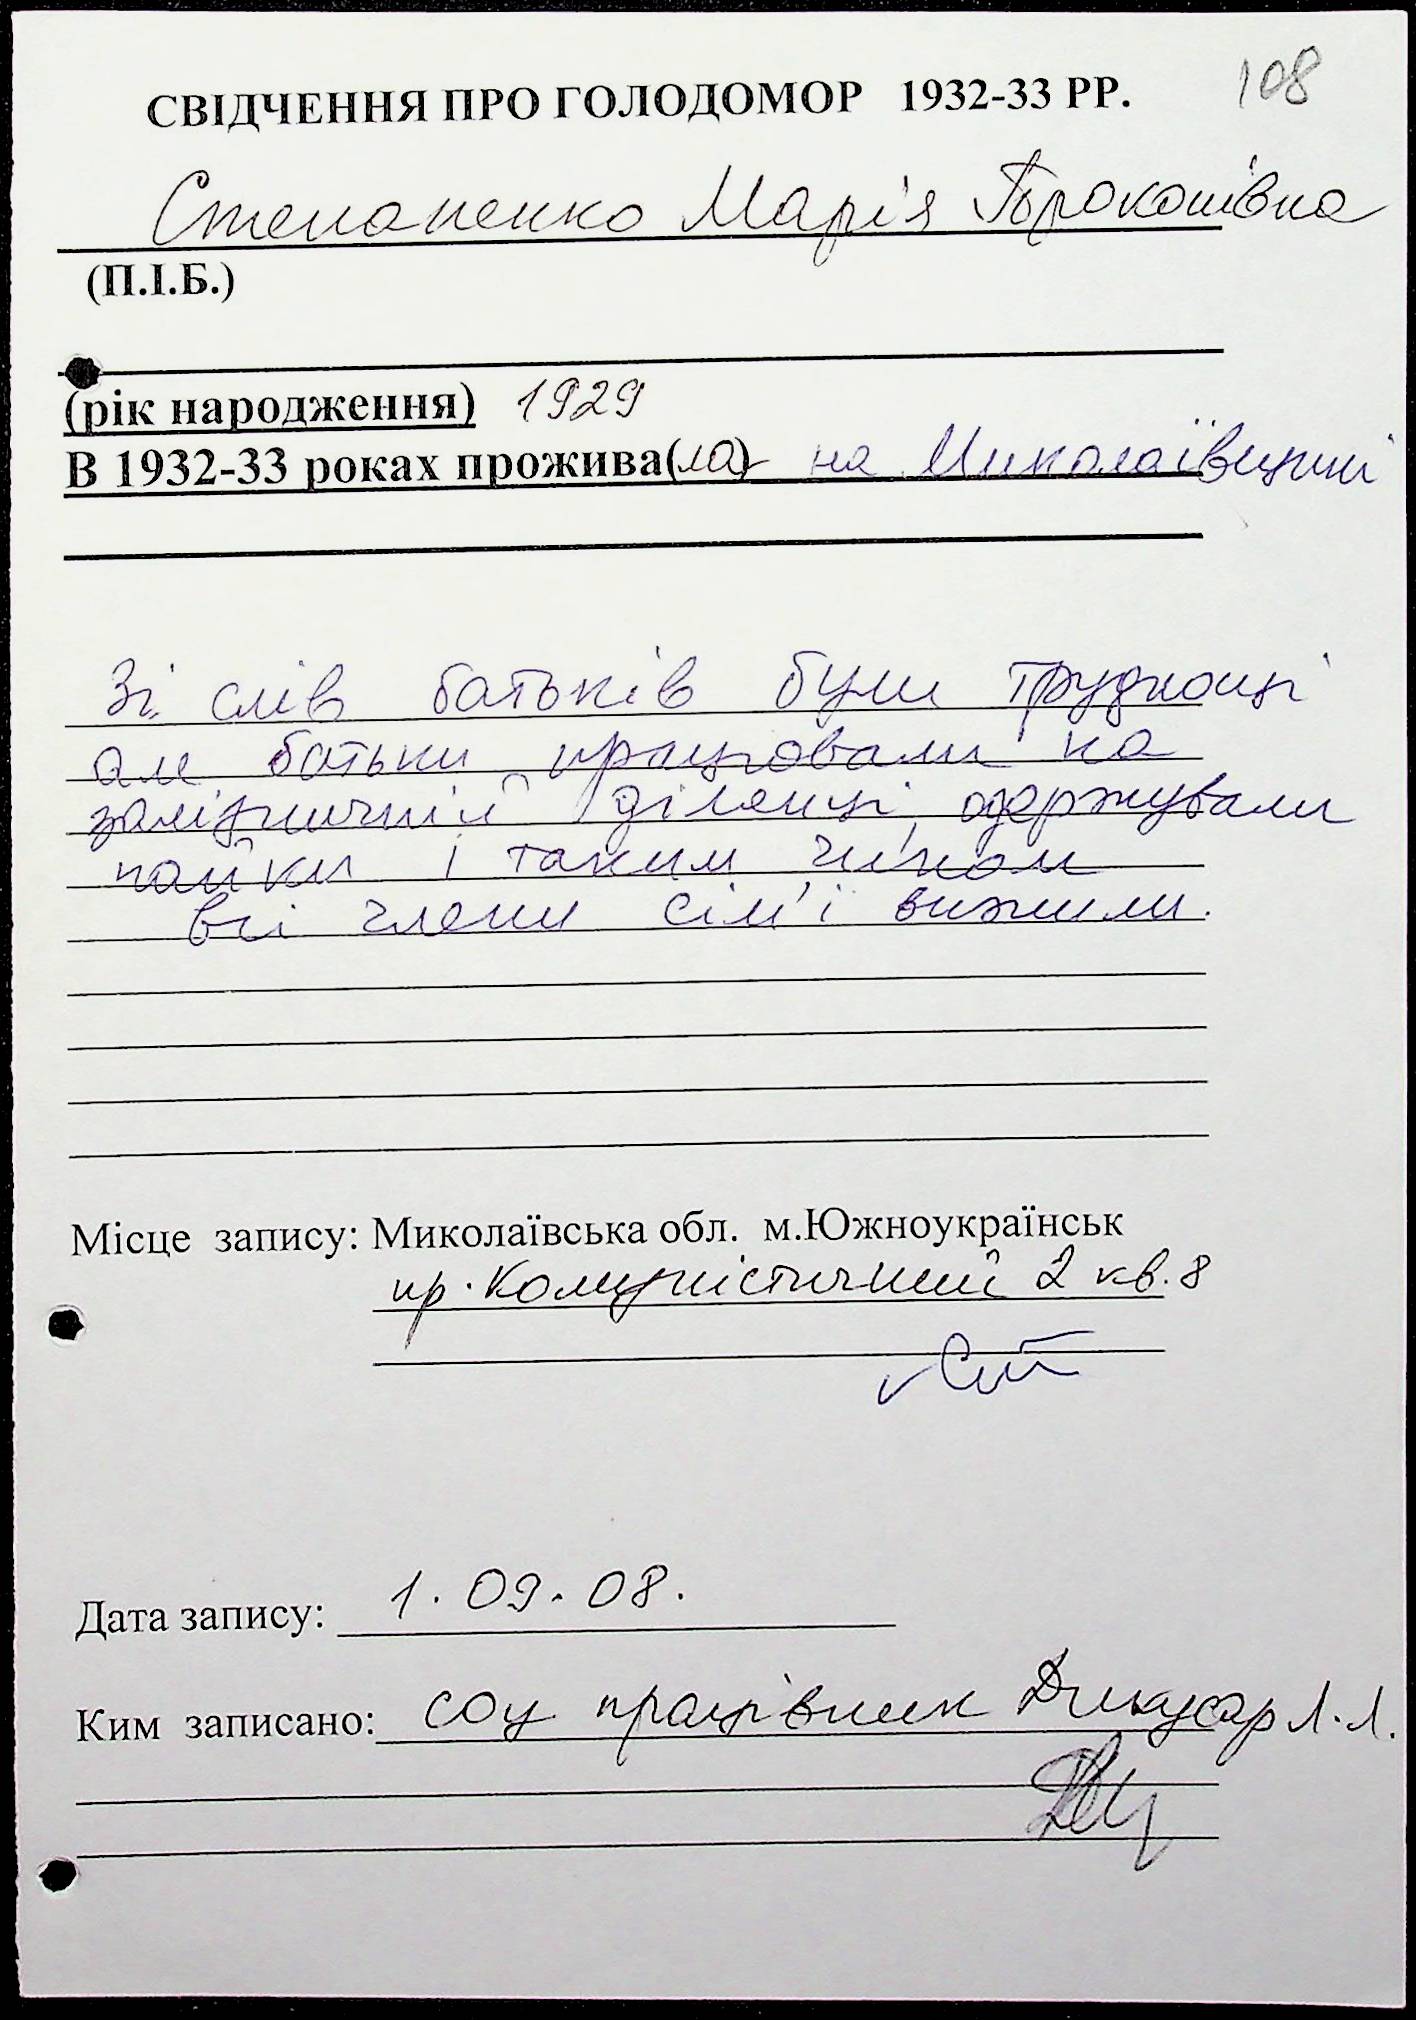 108
СВІДЧЕННЯ ПРО ГОЛОДОМОР 1932-33 РР.
Степаненко Марія Прокопівна
(П.І.Б.)
(рік народження) 1929
В 1932-33 роках прожива(ла) на Миколаївщині
Зі слів батьків були труднощі
але батьки працювали на
залізничній ділянці, одержували
пайки і таким чином
всі члени сім'ї вижили.
Місце запису: Миколаївська обл. м.Южноукраїнськ
пр. Комуністичний 2 кв. 8
Дата запису: 1. 09. 08.
Ким записано: соц працівник Дикусар Л. Л.